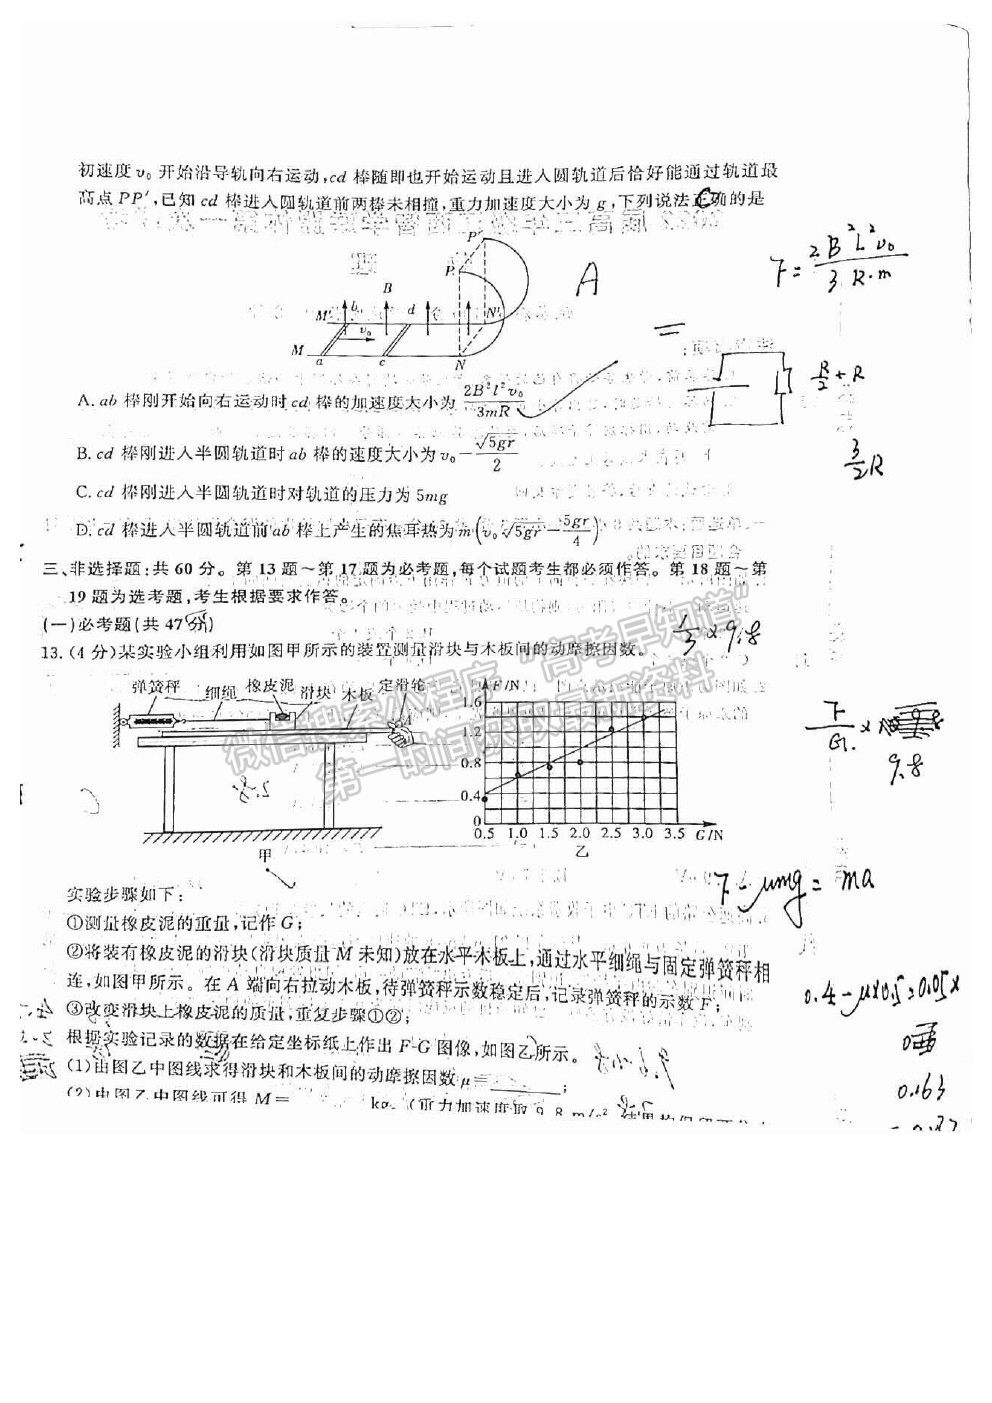 初速度 v₀ 开始沿导轨向右运动,cd 棒随即也开始运动且进入圆轨道后恰好能通过轨道最
高点 PP′,已知 cd 棒进入圆轨道前两棒未相撞,重力加速度大小为 g,下列说法正确的是
P′
P
B
M′ b d N′
v₀
M a c N
A
F= 2B²L²v₀ / 3R·m
=
R/2+R
3/2 R
A. ab 棒刚开始向右运动时 cd 棒的加速度大小为 2B²l²v₀/3mR
B. cd 棒刚进入半圆轨道时 ab 棒的速度大小为 v₀−√5gr/2
C. cd 棒刚进入半圆轨道时对轨道的压力为 5mg
D. cd 棒进入半圆轨道前 ab 棒上产生的焦耳热为 m(v₀√5gr−5gr/4)
三、非选择题:共 60 分。第 13 题～第 17 题为必考题,每个试题考生都必须作答。第 18 题～第
19 题为选考题,考生根据要求作答。
(一)必考题(共 47 分)
1/3×9.8
13. (4 分)某实验小组利用如图甲所示的装置测量滑块与木板间的动摩擦因数。
弹簧秤 细绳 橡皮泥 滑块 木板 定滑轮
A
甲
F/N
1.6
1.2
0.8
0.4
0
0.5 1.0 1.5 2.0 2.5 3.0 3.5 G/N
乙
微信搜索小程序"高考早知道"
第一时间获取最新资料
F/G.×
9.8
F-μmg=ma
实验步骤如下:
①测量橡皮泥的重量,记作 G;
②将装有橡皮泥的滑块(滑块质量 M 未知)放在水平木板上,通过水平细绳与固定弹簧秤相
连,如图甲所示。在 A 端向右拉动木板,待弹簧秤示数稳定后,记录弹簧秤的示数 F;
③改变滑块上橡皮泥的质量,重复步骤①②;
根据实验记录的数据在给定坐标纸上作出 F-G 图像,如图乙所示。
(1)由图乙中图线求得滑块和木板间的动摩擦因数 μ=________;
(2)由图乙中图线可得 M=________kg。(重力加速度取 9.8 m/s²
0.4-μ×0.5=0.05×
0.163